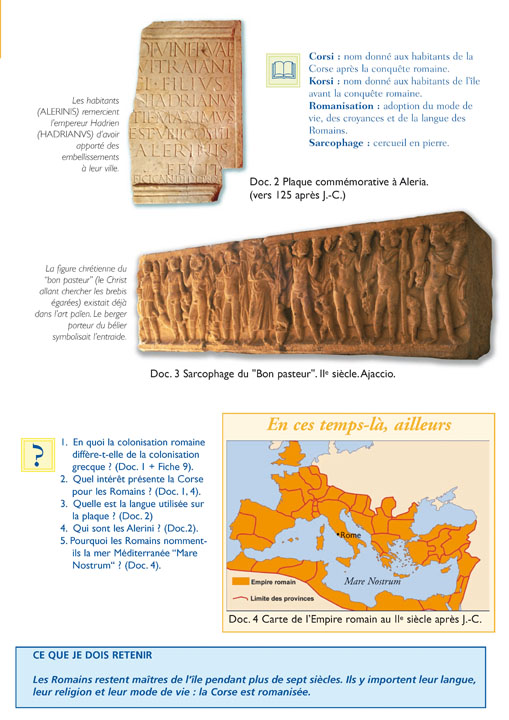 DIVI NERVAE
TRAIANI
FILIVS
HADRIANVS
MAXIMVS
ALERINIS
Les habitants
(ALERINIS) remercient
l'empereur Hadrien
(HADRIANVS) d'avoir
apporté des
embellissements
à leur ville.
Corsi : nom donné aux habitants de la
Corse après la conquête romaine.
Korsi : nom donné aux habitants de l'île
avant la conquête romaine.
Romanisation : adoption du mode de
vie, des croyances et de la langue des
Romains.
Sarcophage : cercueil en pierre.
Doc. 2 Plaque commémorative à Aleria.
(vers 125 après J.-C.)
La figure chrétienne du
"bon pasteur" (le Christ
allant chercher les brebis
égarées) existait déjà
dans l'art païen. Le berger
porteur du bélier
symbolisait l'entraide.
Doc. 3 Sarcophage du "Bon pasteur". IIe siècle. Ajaccio.
?
1. En quoi la colonisation romaine
diffère-t-elle de la colonisation
grecque ? (Doc. 1 + Fiche 9).
2. Quel intérêt présente la Corse
pour les Romains ? (Doc. 1, 4).
3. Quelle est la langue utilisée sur
la plaque ? (Doc. 2)
4. Qui sont les Alerini ? (Doc.2).
5. Pourquoi les Romains nomment-
ils la mer Méditerranée "Mare
Nostrum" ? (Doc. 4).
En ces temps-là, ailleurs
Rome
Mare Nostrum
Empire romain
Limite des provinces
Doc. 4 Carte de l'Empire romain au IIe siècle après J.-C.
CE QUE JE DOIS RETENIR
Les Romains restent maîtres de l'île pendant plus de sept siècles. Ils y importent leur langue,
leur religion et leur mode de vie : la Corse est romanisée.